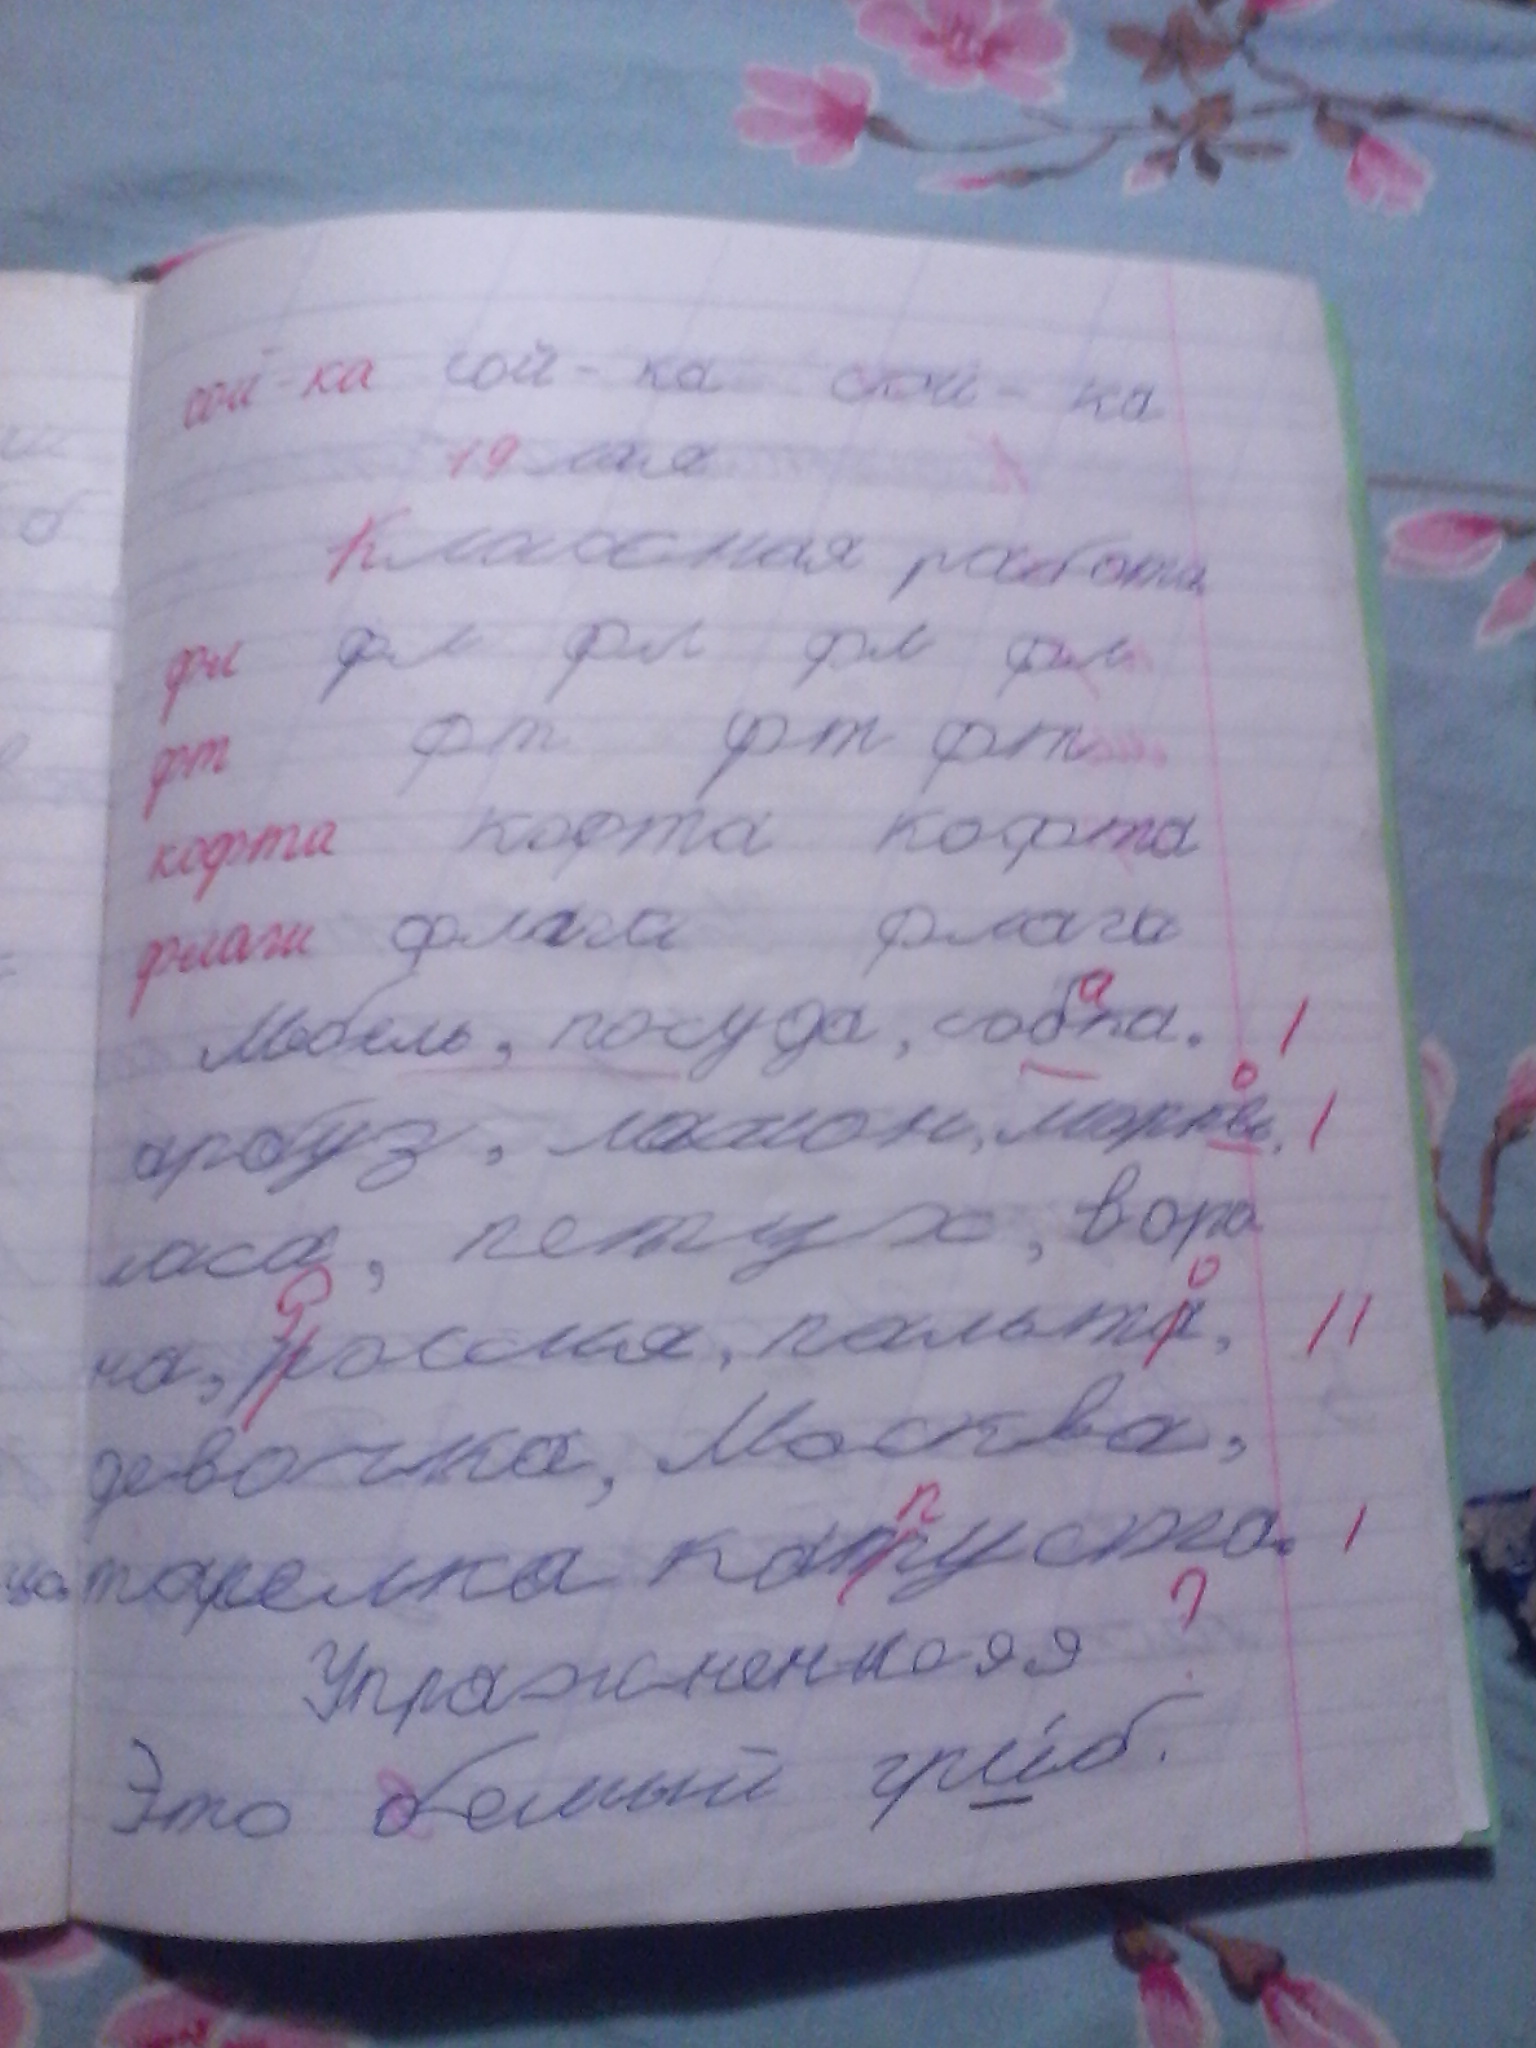 сой-ка сой-ка сой-ка
19 мая
Классная работа
фл фл фл фл фл
фт фт фт фт
кофта кофта кофта
флаги флага флага
Мебель, посуда, собка. а |
арбуз, лимон, моркв, о |
лиса, петух, воро
на, россия, пальта, Р о ||
девочка, Москва,
тарелка капуста. п |
Упражнения ?
Это белый гриб.